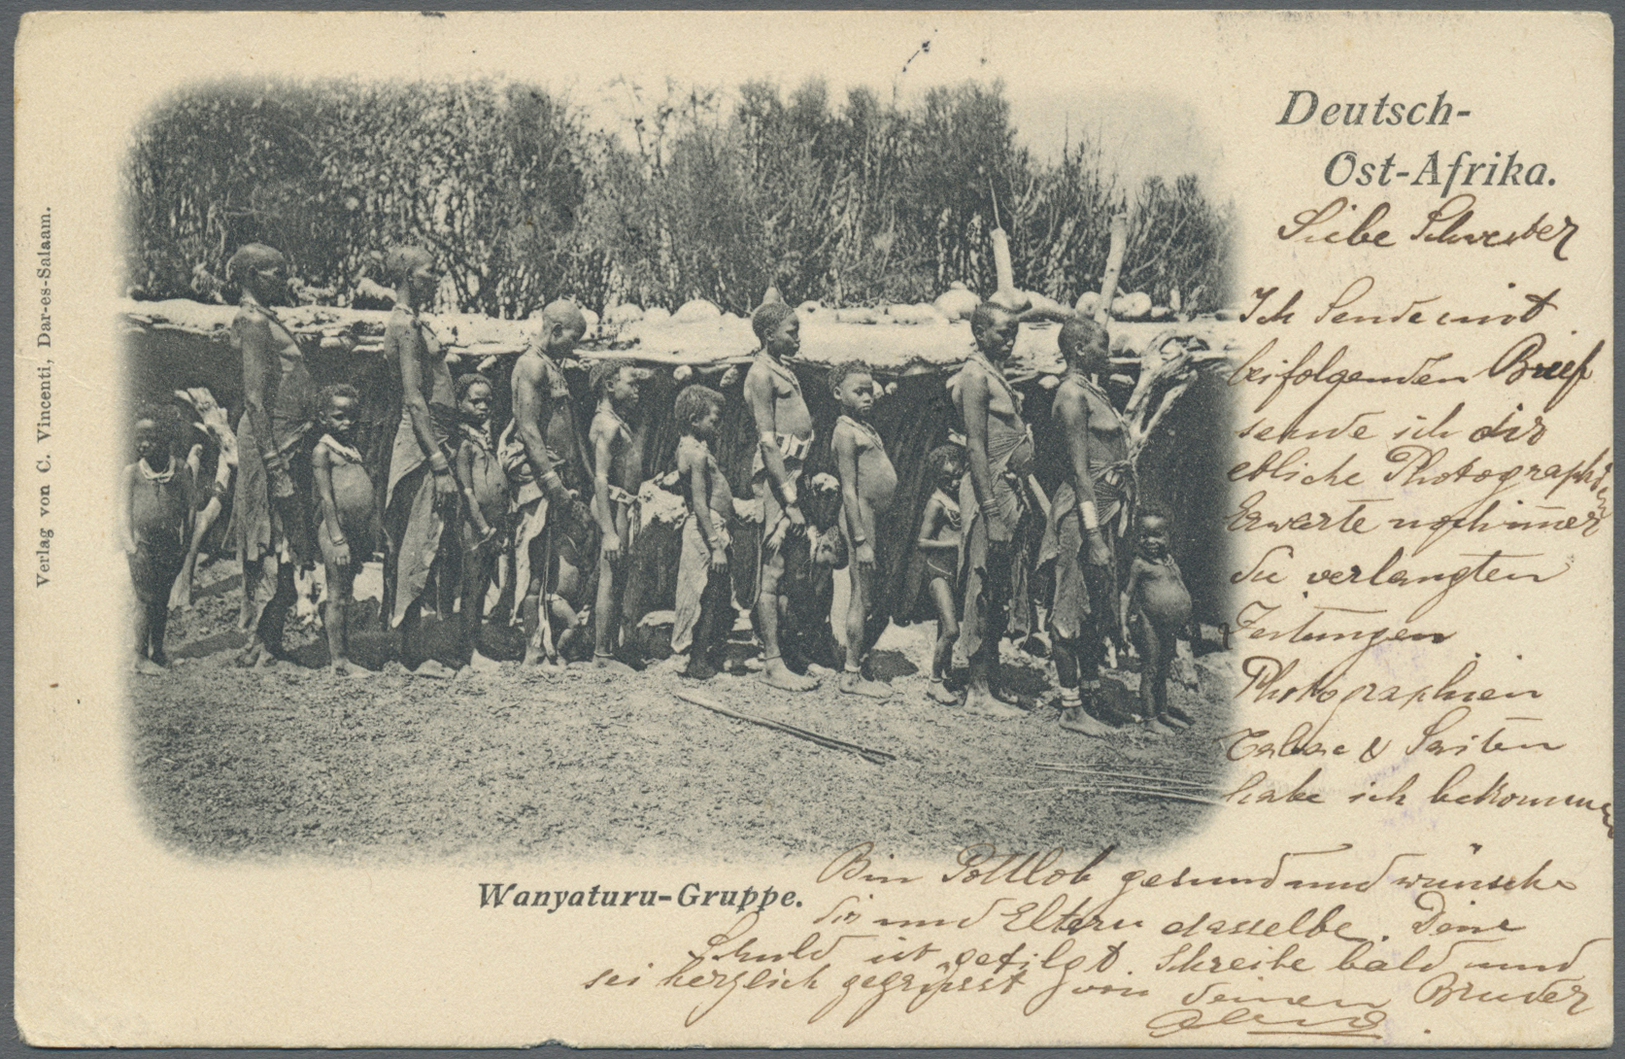 Deutsch-
Ost-Afrika.
Liebe Schwester
Ich sende mit
beifolgenden Brief
sende ich dir
etliche Photographien
Erwarte noch immer
die verlangten
Zeitungen
Photographien
& Saiten
habe ich bekommen
Bin Gottlob gesund und wünsche
dir und Eltern dasselbe. Deine
Schuld ist getilgt. Schreibe bald und
sei herzlich gegrüsst von deinem Bruder
Wanyaturu-Gruppe.
Verlag von C. Vincenti, Dar-es-Salaam.